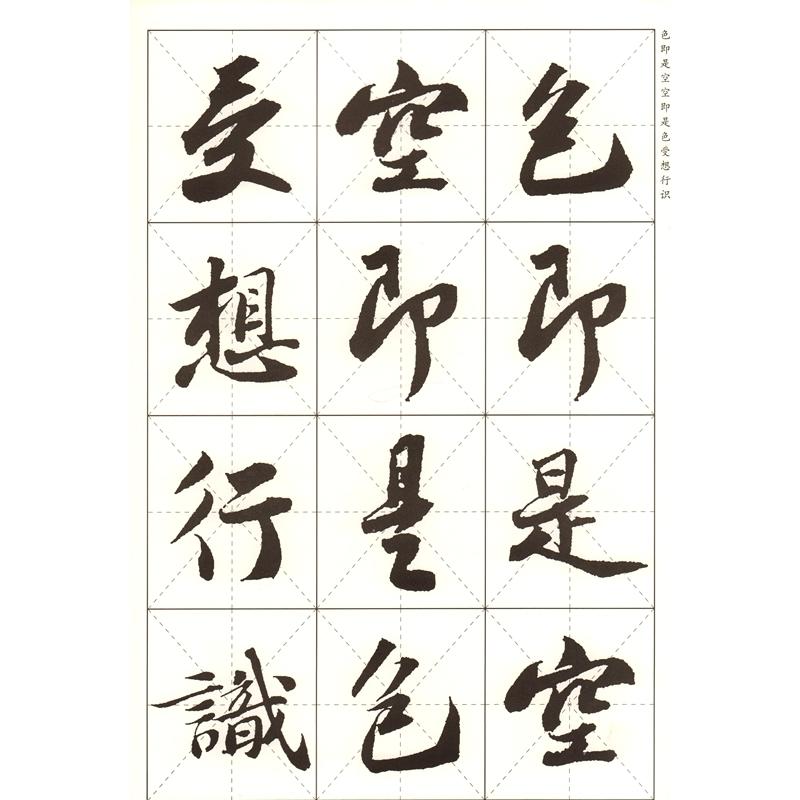 色即是空
空即是色
受想行識
色即是空空即是色受想行识